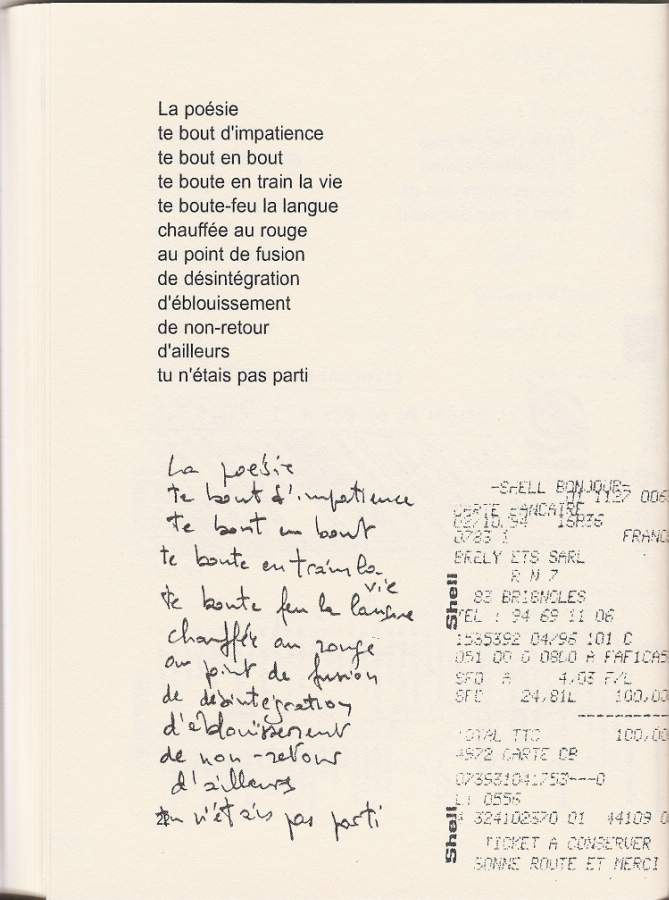 La poésie
te bout d'impatience
te bout en bout
te boute en train la vie
te boute-feu la langue
chauffée au rouge
au point de fusion
de désintégration
d'éblouissement
de non-retour
d'ailleurs
tu n'étais pas parti
La poésie
te bout d'impatience
te bout en bout
te boute en train la
vie
te boute feu la langue
chauffée au rouge
au point de fusion
de désintégration
d'éblouissement
de non-retour
d'ailleurs
tu n'étais pas parti
-SHELL BONJOUR-
01 1127 006
CARTE BANCAIRE
02/10.94 16H36
0783 1 FRANC
BRELY ETS SARL
R N 7
83 BRIGNOLES
TEL : 94 69 11 06
1535392 04/96 101 C
051 00 0 0800 A FAF1CA5
SFD A 4,03 F/L
24,81L 100,00
TOTAL TTC 100,00
4972 CARTE CB
073931041753---0
0556
324102370 01 44109 0
TICKET A CONSERVER
BONNE ROUTE ET MERCI
Shell
Shell